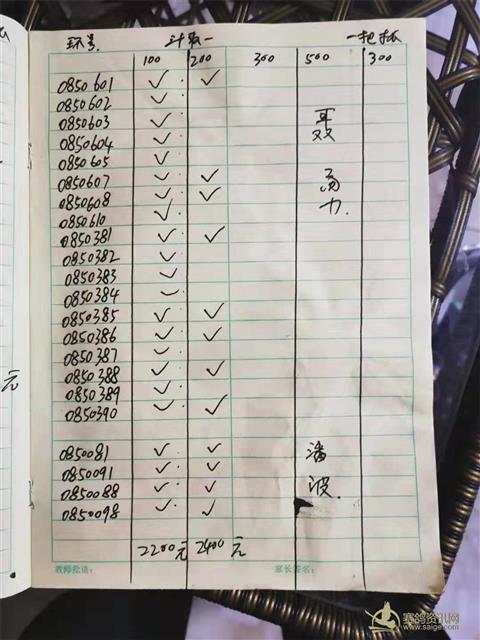 环号 斗取一 一把抓
100 200 300 500 300
0850601 ✓ ✓
0850602 ✓
0850603 ✓
0850604 ✓
0850605 ✓
0850607 ✓ ✓
0850608 ✓ ✓
0850610 ✓
0850381 ✓ ✓
0850382 ✓
0850383 ✓
0850384 ✓
0850385 ✓ ✓
0850386 ✓ ✓
0850387 ✓
0850388 ✓ ✓
0850389 ✓
0850390 ✓ ✓
聂勇力
0850081 ✓ ✓
0850091 ✓ ✓
0850088 ✓ ✓
0850098 ✓ ✓
潘波
2200元 2400元
教师批语: 家长签名:
元
赛鸽资讯网
www.saige.com